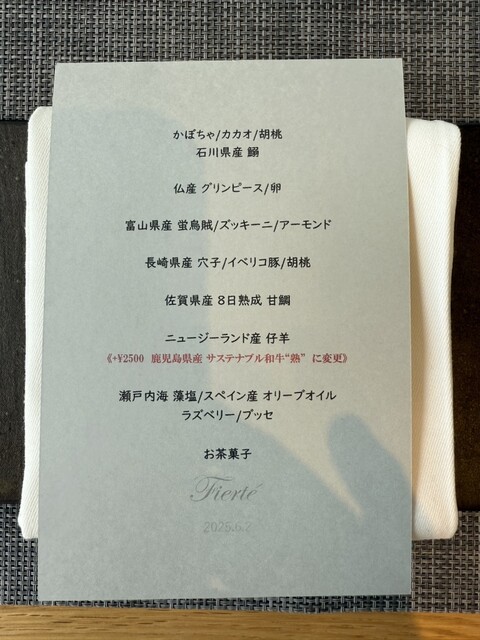 かぼちゃ/カカオ/胡桃
石川県産 鰯
仏産 グリンピース/卵
富山県産 蛍烏賊/ズッキーニ/アーモンド
長崎県産 穴子/イベリコ豚/胡桃
佐賀県産 8日熟成 甘鯛
ニュージーランド産 仔羊
《+¥2500 鹿児島県産 サステナブル和牛“熟” に変更》
瀬戸内海 藻塩/スペイン産 オリーブオイル
ラズベリー/ブッセ
お茶菓子
Fierté
2025.6.2